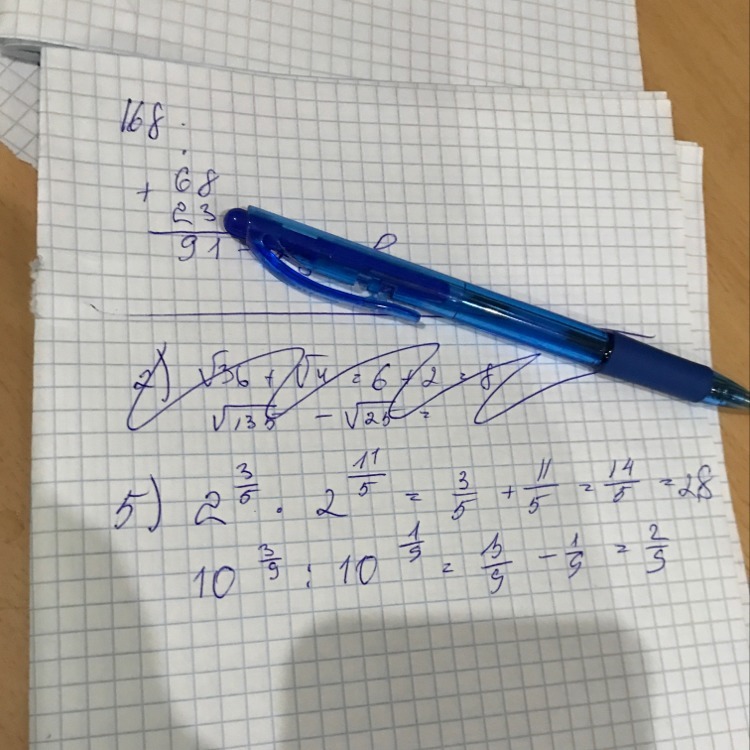 168.
+ 68
23
91 -
2) √36 + √4 = 6 + 2 = 8
√135 - √25 =
5) 2^(3/5) · 2^(11/5) = 3/5 + 11/5 = 14/5 = 28
10^(3/9) : 10^(1/9) = 3/9 - 1/9 = 2/9